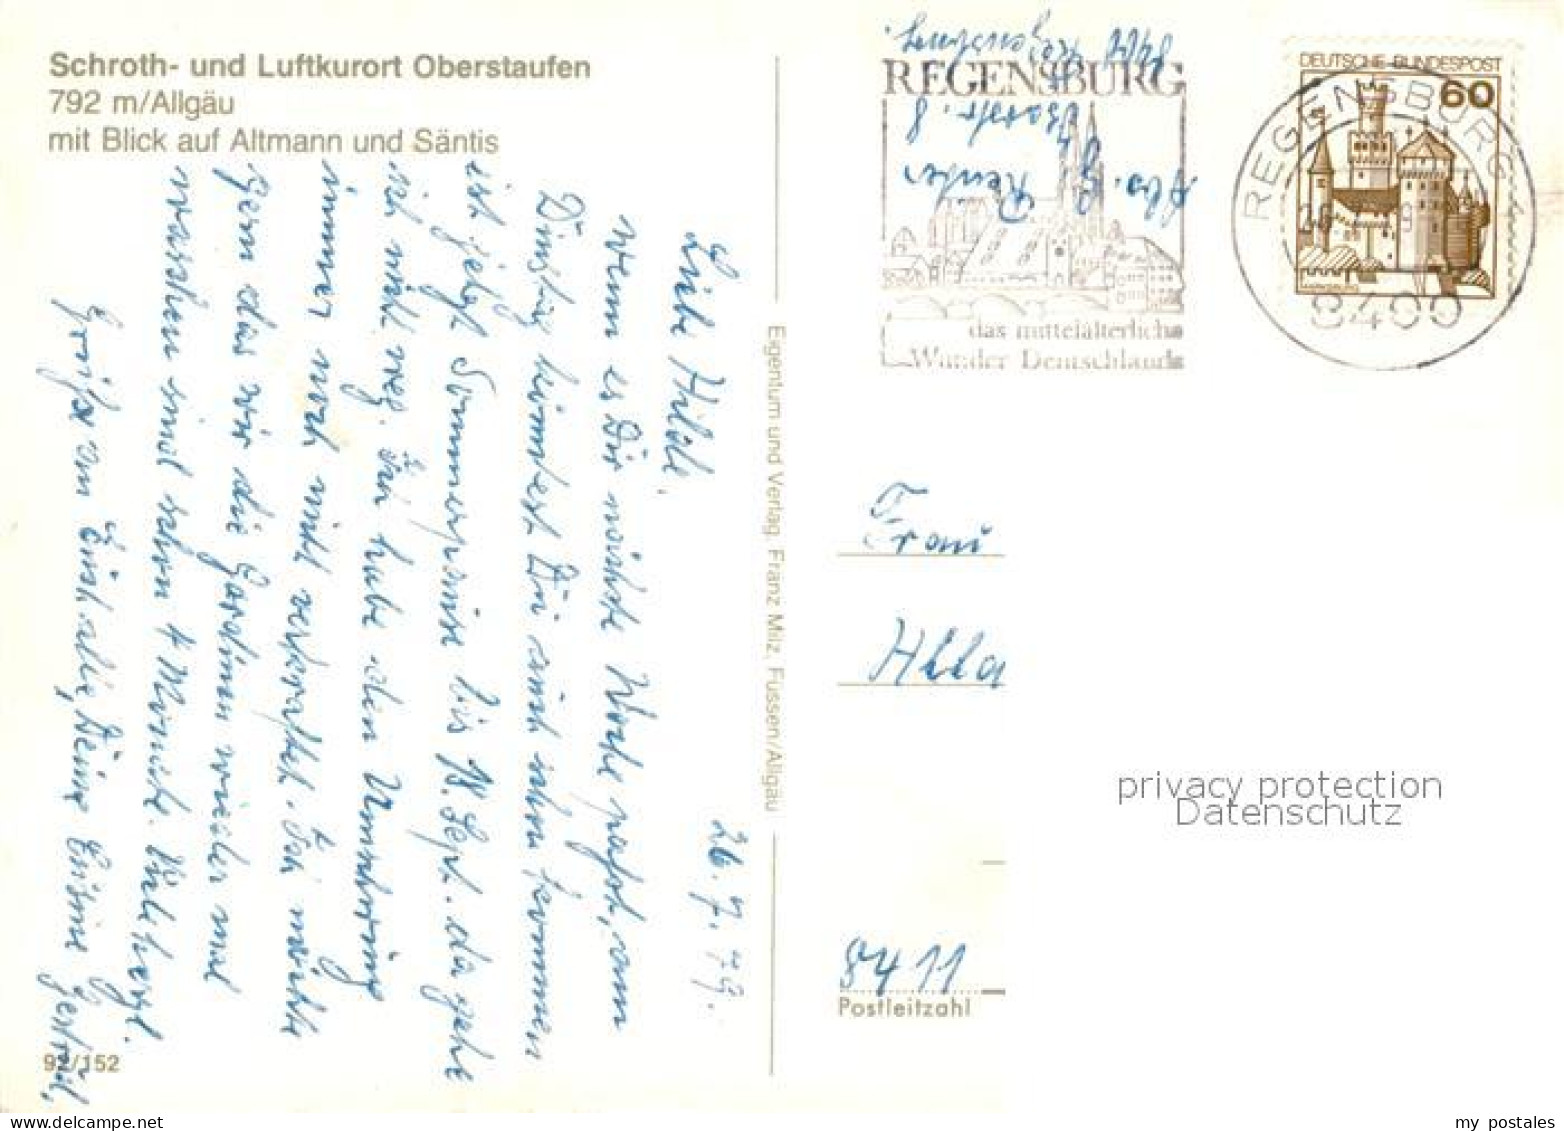 Schroth- und Luftkurort Oberstaufen
792 m/Allgäu
mit Blick auf Altmann und Säntis
26. 7. 79.
Liebe Hilde.
wenn es Dir nächste Woche paßt, am
Dinstag könntest Du auch schon kommen
ist jetzt Sommerpreise bis Sept. da gehe
ich nicht weg. Ich habe den Umschwung
immer noch nicht verkraftet. Ich möchte
gern das wir die Gardinen wieder mal
waschen sind schon 4 Monate. Viele herzl.
Grüße an Euch alle, Deine
92/152
Eigentum und Verlag Franz Milz, Füssen/Allgäu
Abs. G. Reuter
Isarstr. 8
84 Regensburg.
REGENSBURG
das mittelalterliche
Wunder Deutschlands
DEUTSCHE BUNDESPOST
60
REGENSBURG
8400
Frau
Hilda
8411
Postleitzahl
privacy protection
Datenschutz
my postales